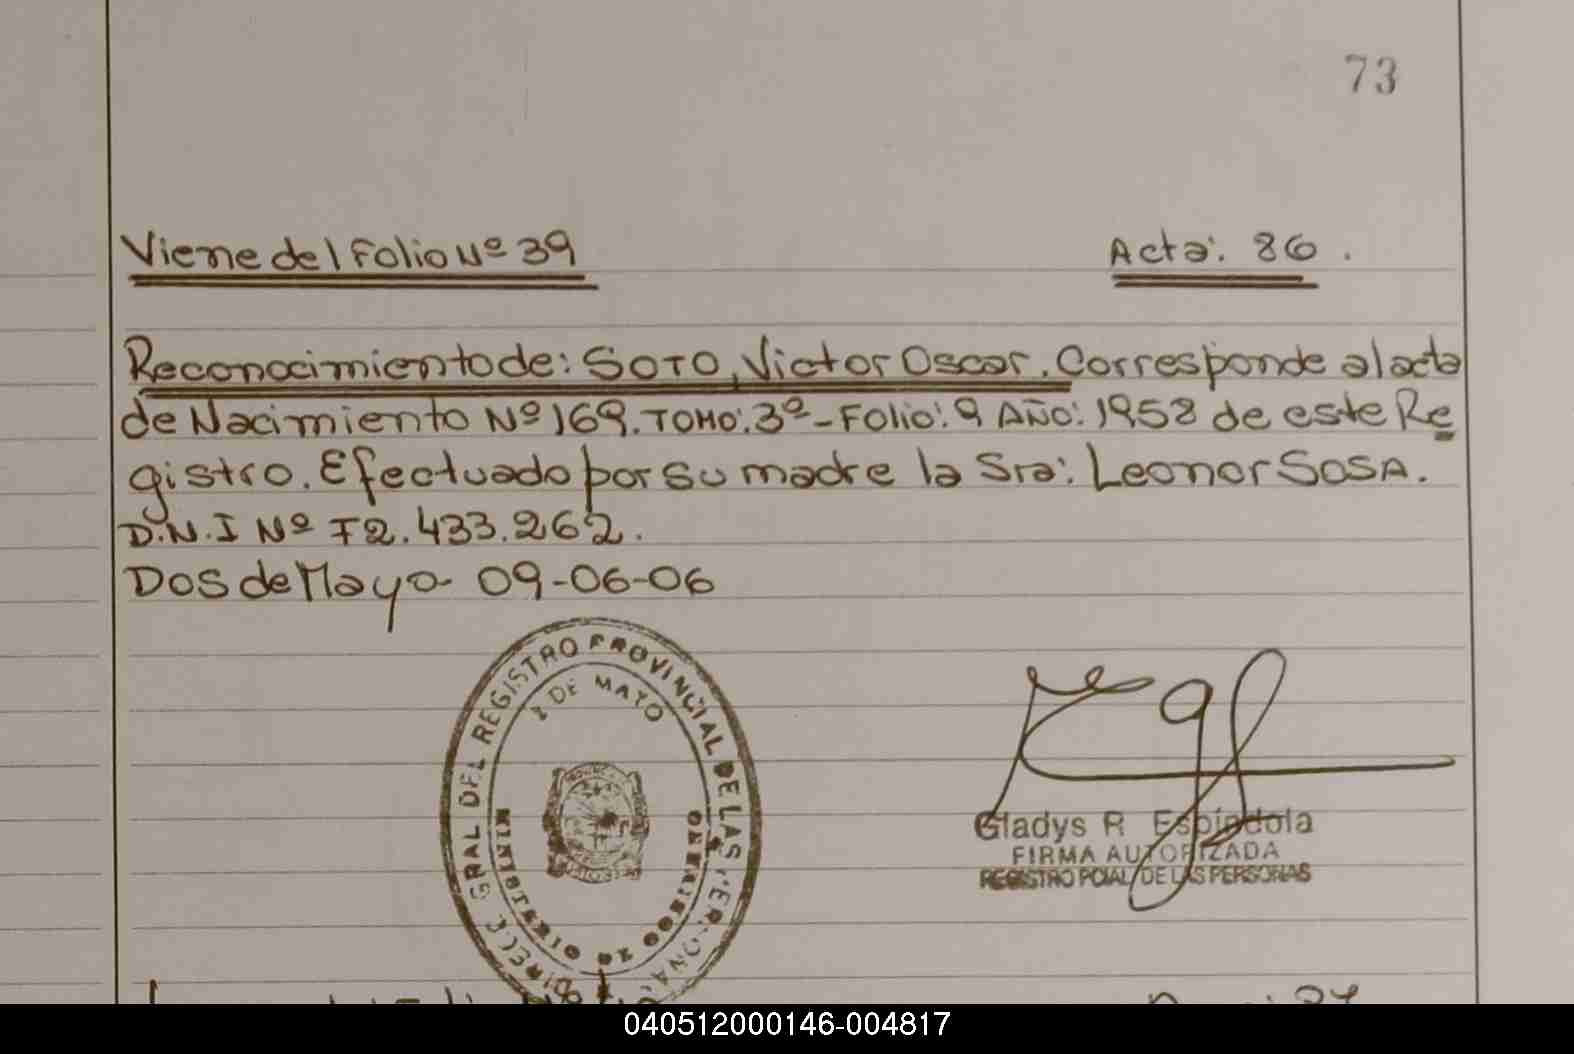 73
Viene del Folio Nº 39
Acta: 86.
Reconocimiento de: SOTO, Victor Oscar. Corresponde al acta
de Nacimiento Nº 169. TOMO: 3º - Folio: 9 AÑO: 1958 de este Re
gistro. Efectuado por su madre la Sra: Leonor SOSA.
D.N.I Nº F2.433.262.
Dos de Mayo 09-06-06
DIRECC. GRAL DEL REGISTRO PROVINCIAL DE LAS PERSONAS
2 DE MAYO
MINISTERIO DE GOBIERNO
Gladys R Espíndola
FIRMA AUTORIZADA
REGISTRO PCIAL DE LAS PERSONAS
040512000146-004817